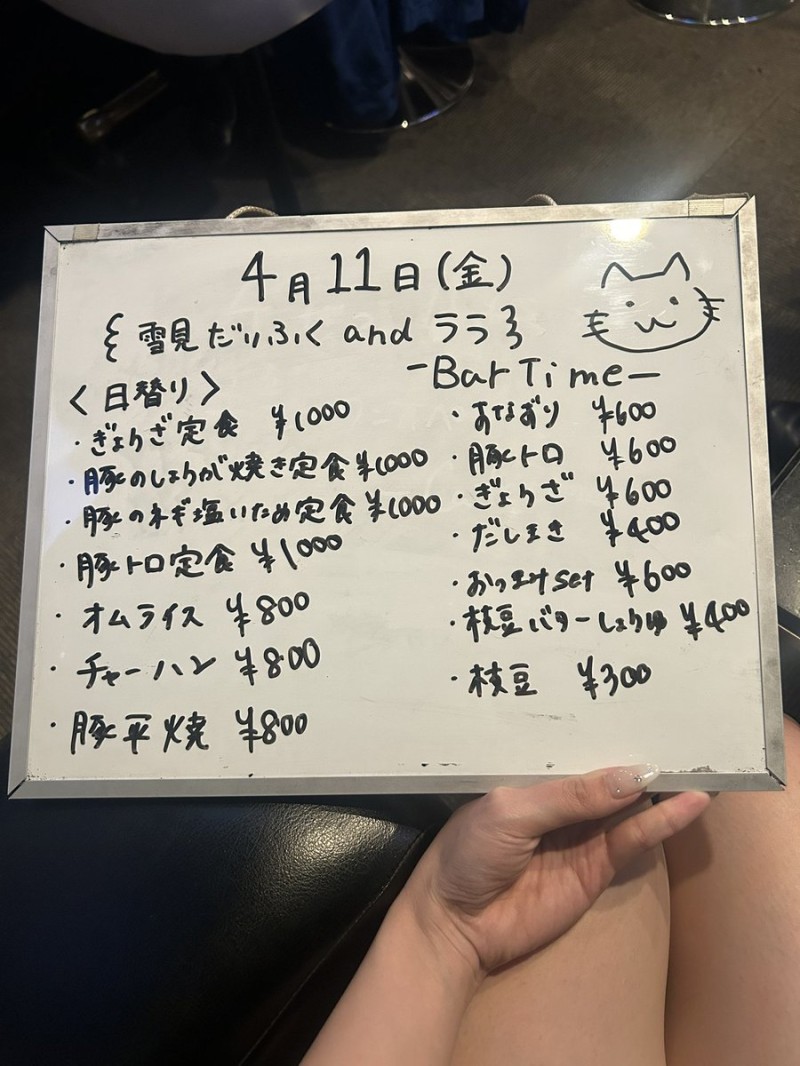 4月11日(金)
{ 雪見だいふく and ララ }
〈日替り〉
・ぎょうざ定食 ¥1000
・豚のしょうが焼き定食 ¥1000
・豚のネギ塩いため定食 ¥1000
・豚トロ定食 ¥1000
・オムライス ¥800
・チャーハン ¥800
・豚平焼 ¥800
-Bar Time-
¥600
・豚トロ ¥600
・ぎょうざ ¥600
・だしまき ¥400
・おつまみset ¥600
・枝豆バターしょうゆ ¥400
・枝豆 ¥300